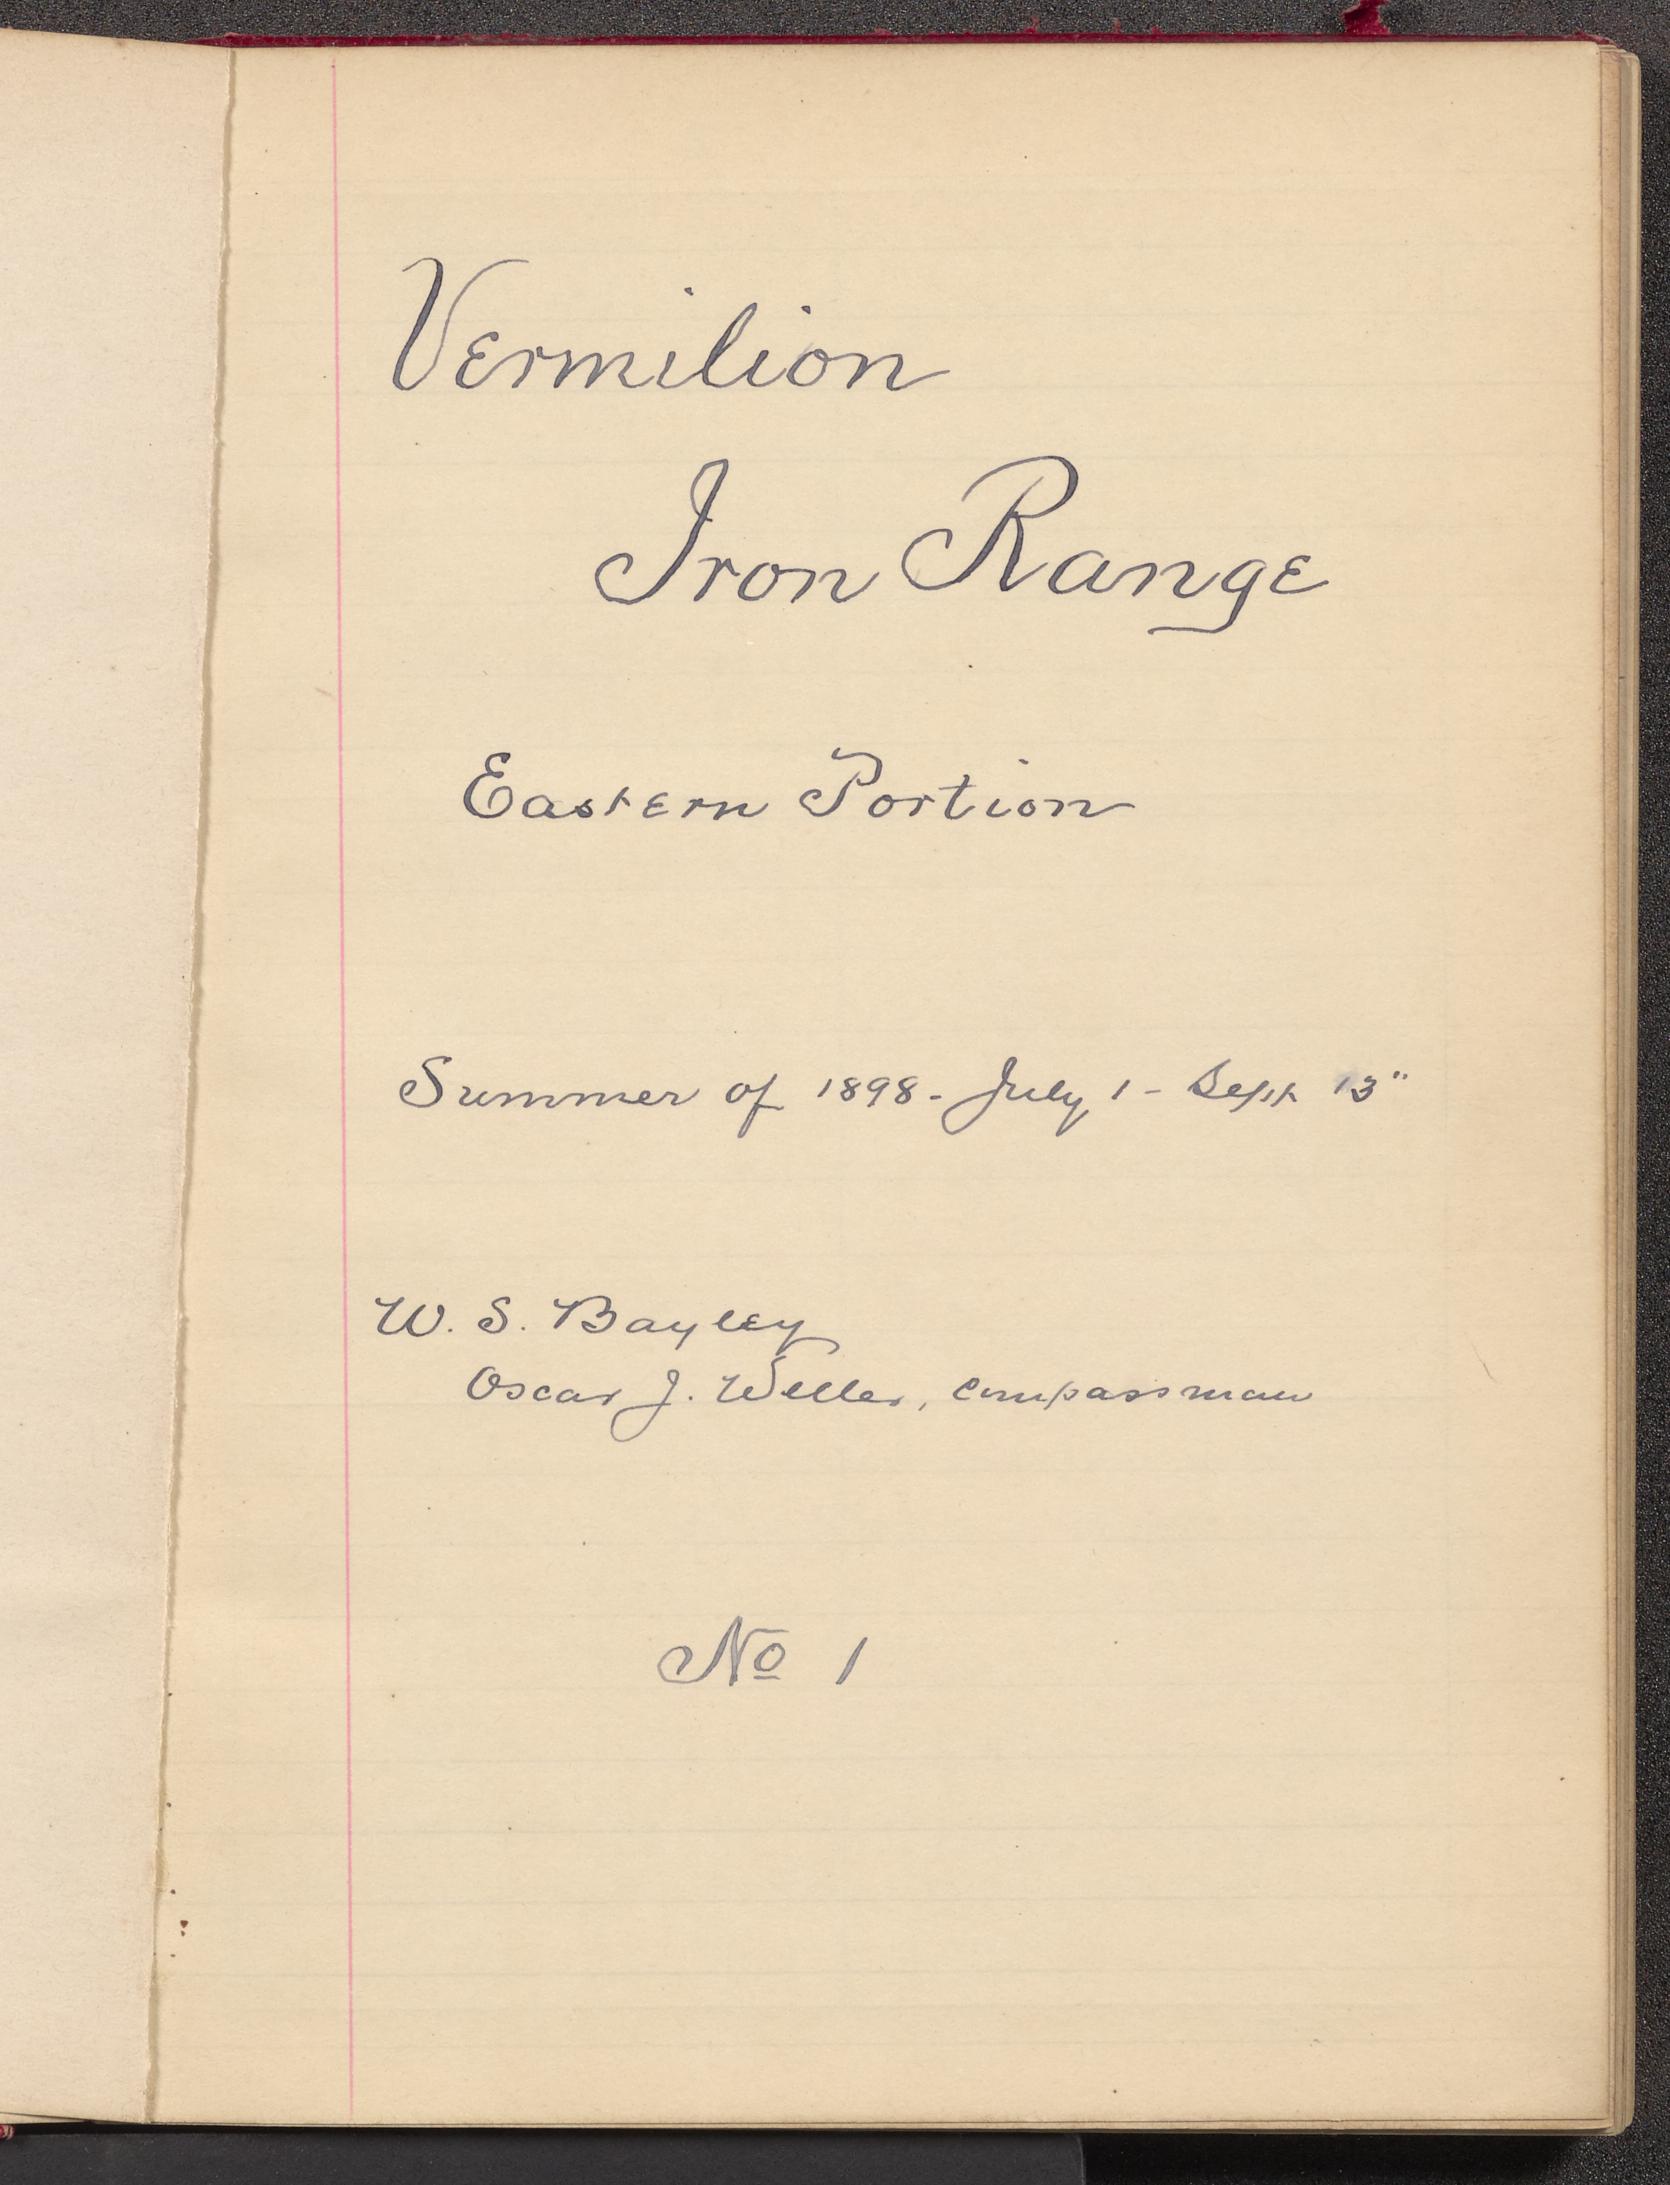 Vermilion
Iron Range
Eastern Portion
Summer of 1898 - July 1 - Sept 13"
W. S. Bayley
Oscar J. Weller, compassman
No 1